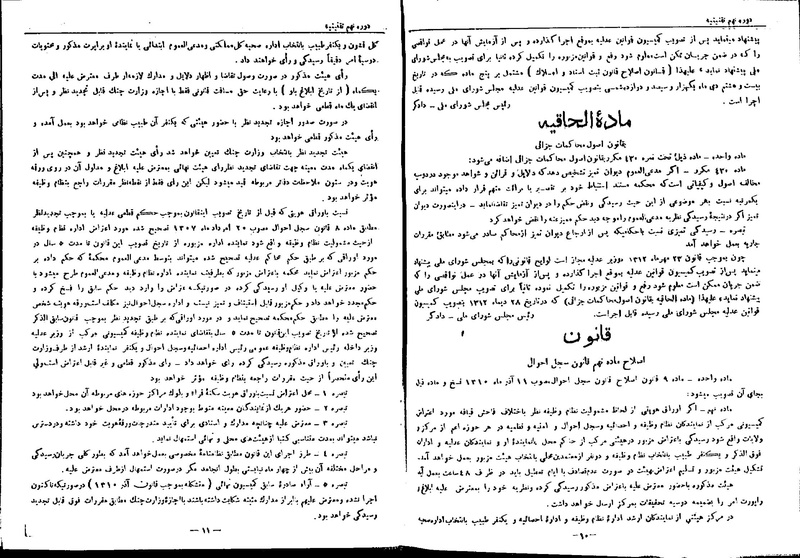 دوره نهم تقنینیه
پیشنهاد مینماید پس از تصویب کمیسیون قوانین عدلیه بموقع اجرا گذارده و پس از آزمایش آنها در عمل نواقصی
را که در ضمن جریان ممکن است معلوم شود رفع و قوانین مزبوره را تکمیل کرده ثانیا برای تصویب بمجلس شورای
ملی پیشنهاد نماید » علیهذا ( قانون اصلاح قانون ثبت اسناد و املاک ) مشتمل بر پنج ماده که در تاریخ
بیست و هشتم دی ماه یکهزار و سیصد و دوازده شمسی بتصویب کمیسیون قوانین عدلیه مجلس شورای ملی رسیده قابل
اجرا است . رئیس مجلس شورای ملی - دادگر
مادة الحاقیه
بقانون اصول محاکمات جزائی
ماده واحده - ماده ذیل تحت نمره ۴۳۰ مکرر بقانون اصول محاکمات جزائی اضافه می‌شود:
ماده ۴۳۰ مکرر - اگر مدعی‌العموم دیوان تمیز تشخیص دهد که دلایل و قرائن و شواهد موجود در دوسیه
مخالف اصول و کیفیاتی است که محکمه مستند استنباط خود بر تقصیر یا برائت متهم قرار داده میتواند برای
یکمرتبه نسبت بهر موضوعی از این حیث رسیدگی و نقض حکم را در دیوان تمیز تقاضا نماید - در اینصورت دیوان
تمیز اگر در نتیجه رسیدگی نظریه مدعی‌العموم را موجه دید حکم ممیز عنه را نقض خواهد کرد
تبصره - رسیدگی تمیزی نسبت باحکامیکه پس از ارجاع دیوان تمیز از محاکم صادر می‌شود مطابق مقررات
جاریه بعمل خواهد آمد
چون بموجب قانون ۲۳ مهرماه ۱۳۱۲ «وزیر عدلیه مجاز است لوایح قانونی را که بمجلس شورای ملی پیشنهاد
مینماید پس از تصویب کمیسیون قوانین عدلیه بموقع اجرا گذارده و پس از آزمایش آنها در عمل نواقصی را که در
ضمن جریان ممکن است معلوم شود رفع و قوانین مزبوره را تکمیل نموده ثانیاً برای تصویب بمجلس شورای ملی
پیشنهاد نماید» علیهذا (ماده الحاقیه بقانون اصول محاکمات جزائی) که در تاریخ ۲۸ دیماه ۱۳۱۲ بتصویب کمیسیون
قوانین عدلیه مجلس شورای ملی رسیده قابل اجراست. رئیس مجلس شورای ملی - دادگر
قانون
اصلاح ماده نهم قانون سجل احوال
ماده واحده - ماده ۹ قانون اصلاح قانون سجل احوال مصوب ۱۱ آذر ماه ۱۳۱۰ فسخ و ماده ذیل
بجای آن تصویب میشود:
ماده نهم - اگر اوراق هویتی از لحاظ مشمولیت نظام وظیفه نظر باختلاف فاحش قیافه مورد اعتراض
کمیسیونی مرکب از نمایندگان نظام وظیفه و احصائیه و سجل احوال و امنیه و نظمیه در هر حوزه اعم از مرکز و
ولایات واقع شود رسیدگی باعتراض مزبور در هیئتی مرکب از حاکم محل یا نماینده او و نمایندگان عدلیه و ادارات
فوق الذکر و یکنفر طبیب بانتخاب نظام وظیفه و دو نفر از معتمدین محلی بانتخاب هیئت مزبور بعمل خواهد آمد.
تشکیل هیئت مزبور و تسلیم اعتراض بهیئت در صورت عدم تصادف با ایام تعطیل باید در ظرف ۴۸ ساعت بعمل آید
هیئت مذکوره با حضور معترض علیه باعتراض مذکور رسیدگی کرده و نظریه خود را بمعترض علیه ابلاغ و
راپورت امر را بضمیمه دوسیه تحقیقات بمرکز ارسال خواهد داشت .
در مرکز هیئتی از نمایندگان ارشد ادارۀ نظام وظیفه و ادارۀ احصائیه و یکنفر طبیب بانتخاب اداره صحیه
— ۱۰ —
دوره نهم تقنینیه
کل قشون و یکنفر طبیب بانتخاب اداره صحیه کل مملکتی و مدعی العموم ابتدائی یا نمایندۀ او براپرت مذکور و محتویات
دوسیۀ امر دقیقاً رسیدگی و رأی خواهند داد .
رأی هیئت مذکور در صورت وصول تقاضا و اظهار دلایل و مدارک لازمه از طرف معترض علیه الی مدت
یکماه ( از تاریخ ابلاغ باو ) با رعایت حق مسافت قانونی فقط با اجازه وزارت جنگ قابل تجدید نظر و پس از
انقضای یک ماه قطعی خواهد بود .
در صورت صدور اجازه تجدید نظر با حضور هیئتی که یکنفر آن طبیب نظامی خواهد بود بعمل آمده و
رأی هیئت مذکور قطعی خواهد بود
هیئت تجدید نظر بانتخاب وزارت جنگ تعیین خواهد شد رأی هیئت تجدید نظر و همچنین پس از
انقضای یکماه مدت معینه جهت تقاضای تجدید نظر رأی هیئت نهائی بمعترض علیه ابلاغ و مدلول آن در روی ورقه
هویت و در ستون ملاحظات دفاتر مربوطه قید میشود لیکن این رأی فقط از نقطه‌نظر مقررات راجع بنظام وظیفه
مؤثر خواهد بود .
نسبت باوراق هویتی که قبل از تاریخ تصویب این قانون بموجب حکم قطعی عدلیه یا بموجب تجدیدنظر
مطابق ماده ۸ قانون سجل احوال مصوب ۲۰ امرداد ماه ۱۳۰۷ تصحیح شده مورد اعتراض اداره نظام وظیفه
از حیث مشمولیت نظام وظیفه واقع شود نماینده اداره مزبوره از تاریخ تصویب این قانون تا مدت ۵ سال در
مورد اوراقی که بر طبق حکم محاکم عدلیه تصحیح شده میتواند بتوسط مدعی العموم محکمۀ که حکم داده بر
حکم مزبور اعتراض نماید محکمه باعتراض مزبور که بطرفیت نماینده اداره نظام وظیفه و مدعی‌العموم طرح میشود با
حضور معترض علیه یا وکیل او رسیدگی کرده در صورتیکه اعتراض را وارد دید حکم سابق را فسخ کرده و
حکم مجدد خواهد داد و حکم مزبور قابل استیناف و تمیز نیست و اداره سجل احوال نیز مکلف است ورقه هویت شخص
معترض علیه را مطابق حکم محکمه تصحیح نماید و در مورد اوراقی که بر طبق تجدید نظر بموجب قانون سابق الذکر
تصحیح شده از تاریخ تصویب این قانون تا مدت ۵ سال بتقاضای نماینده نظام وظیفه کمیسیونی مرکب از وزیر عدلیه
وزیر داخله رئیس اداره نظام وظیفه عمومی رئیس اداره احصائیه و سجل احوال و یکنفر نماینده ارشد از طرف وزارت
جنگ تعیین و باوراق مذکوره رسیدگی کرده رای خواهد داد - رای مذکور قطعی و غیر قابل اعتراض است ولی
این رأی منحصراً از حیث مقررات راجعه بنظام وظیفه مؤثر خواهد بود
تبصره ۱ - محل اعتراض نسبت باوراق هویت سکنۀ قراء و بلوک مراکز حوزه های مربوطه آن محل خواهد بود
تبصره ۲ - حضور هر یک از نمایندگان معینه منوط بوجود ادارات مربوطه در محل خواهد بود.
تبصره ۳ - معترض علیه چنانچه مدارک و اسنادی برای تأیید مندرجات ورقۀ هویت خود داشته و در دسترس
نباشد میتواند بمدت متناسبی کتبا از هیئت‌های محلی و نهائی استمهال نماید.
تبصره ۴ - طرز اجرای این قانون مطابق نظامنامۀ مخصوصی بعمل خواهد آمد که بطور کلی جریان رسیدگی
و مراحل مختلفه آن بیش از چهار ماه نبایستی بطول انجامد مگر در صورت استمهال از طرف معترض علیه.
تبصره ۵ - آراء صادرۀ سابق کمیسیون نهائی ( متشکله بموجب قانون ... آذر ۱۳۱۰ ) در صورتیکه تاکنون
اجرا نشده و معترض علیهم بابراز مدارک مثبته شکایت داشته باشند با اجازۀ وزارت جنگ مطابق مقررات فوق قابل تجدید
رسیدگی خواهد بود.
— ۱۱ —